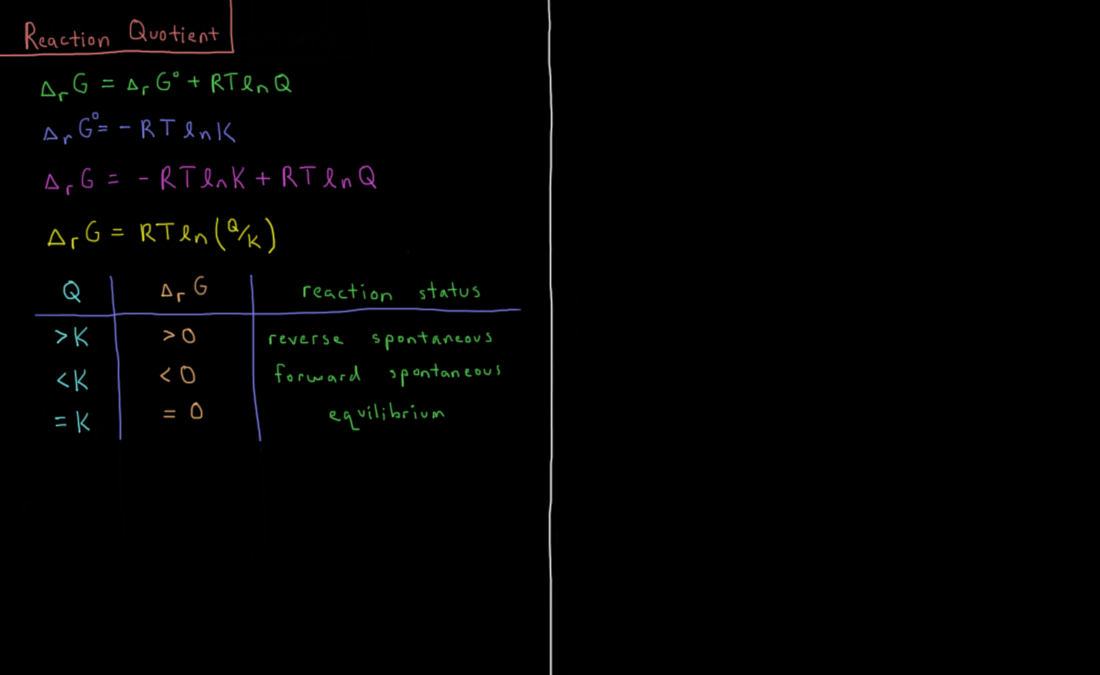 Reaction Quotient
ΔᵣG = ΔᵣG° + RTlnQ
ΔᵣG° = - RTlnK
ΔᵣG = - RTlnK + RTlnQ
ΔᵣG = RTln(Q/K)
Q ΔᵣG reaction status
>K >0 reverse spontaneous
<K <0 forward spontaneous
=K =0 equilibrium